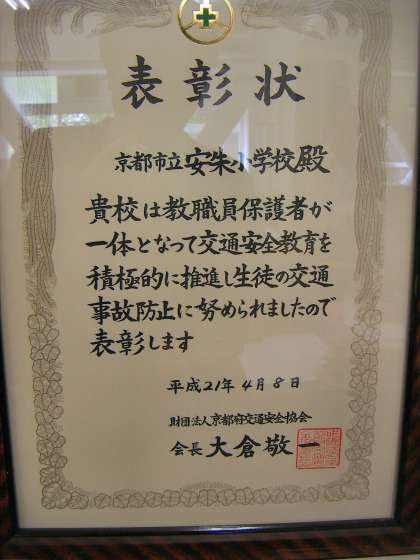 表彰状
京都市立安朱小学校殿
貴校は教職員保護者が
一体となって交通安全教育を
積極的に推進し生徒の交通
事故防止に努められましたので
表彰します
平成21年4月8日
財団法人京都府交通安全協会
会長 大倉敬一